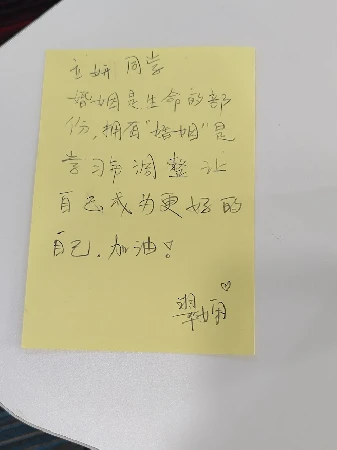 妍同学
婚姻是生命的部
份,拥有“婚姻”是
学习和调整让
自己成为更好的
自己,加油!
翠娟